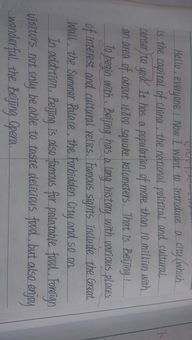 Hello, everyone! Now I want to introduce a city which
is the capital of China, the national political and cultural
center to you. It has a population of more than 10 million with
an area of about 16800 square kilometers. That is Beijing!
To begin with, Beijing has a long history with various places
of interest and cultural relics. Famous sights include the Great
Wall, the Summer Palace, the Forbidden City and so on.
In addition, Beijing is also famous for palatable food. Foreign
visitors not only be able to taste delicious food, but also enjoy
wonderful the Beijing Opera.